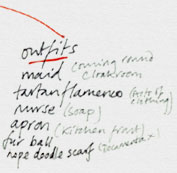 outfits
maid (coming round cloakroom
tartan flamenco (bits of clothing)
nurse (soap)
apron (kitchen
fur ball
rope doodle scarf